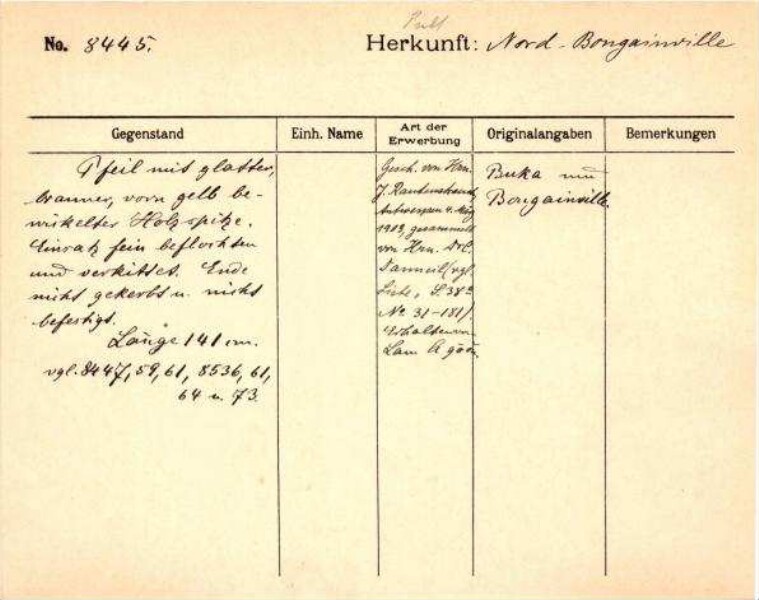 No. 8445.
Herkunft: Nord-Bougainville
Gegenstand
Einh. Name
Art der Erwerbung
Originalangaben
Bemerkungen
Pfeil mit glatter,
brauner, vorn gelb be-
wickelter Holzspitze.
Einsatz fein beflochten
und verkittet. Ende
nicht gekerbt u. nicht
befestigt.
Länge 141 cm.
vgl. 8447, 59, 61, 8536, 61,
64 u. 73.
Gesch. von Hrn.
J. Rautenstrauch,
Antwerpen 4. März
gesammelt
von Hrn.
(vgl.
Liste, S. 38a
No 31-181).
Erhalten von
Buka und
Bougainville.